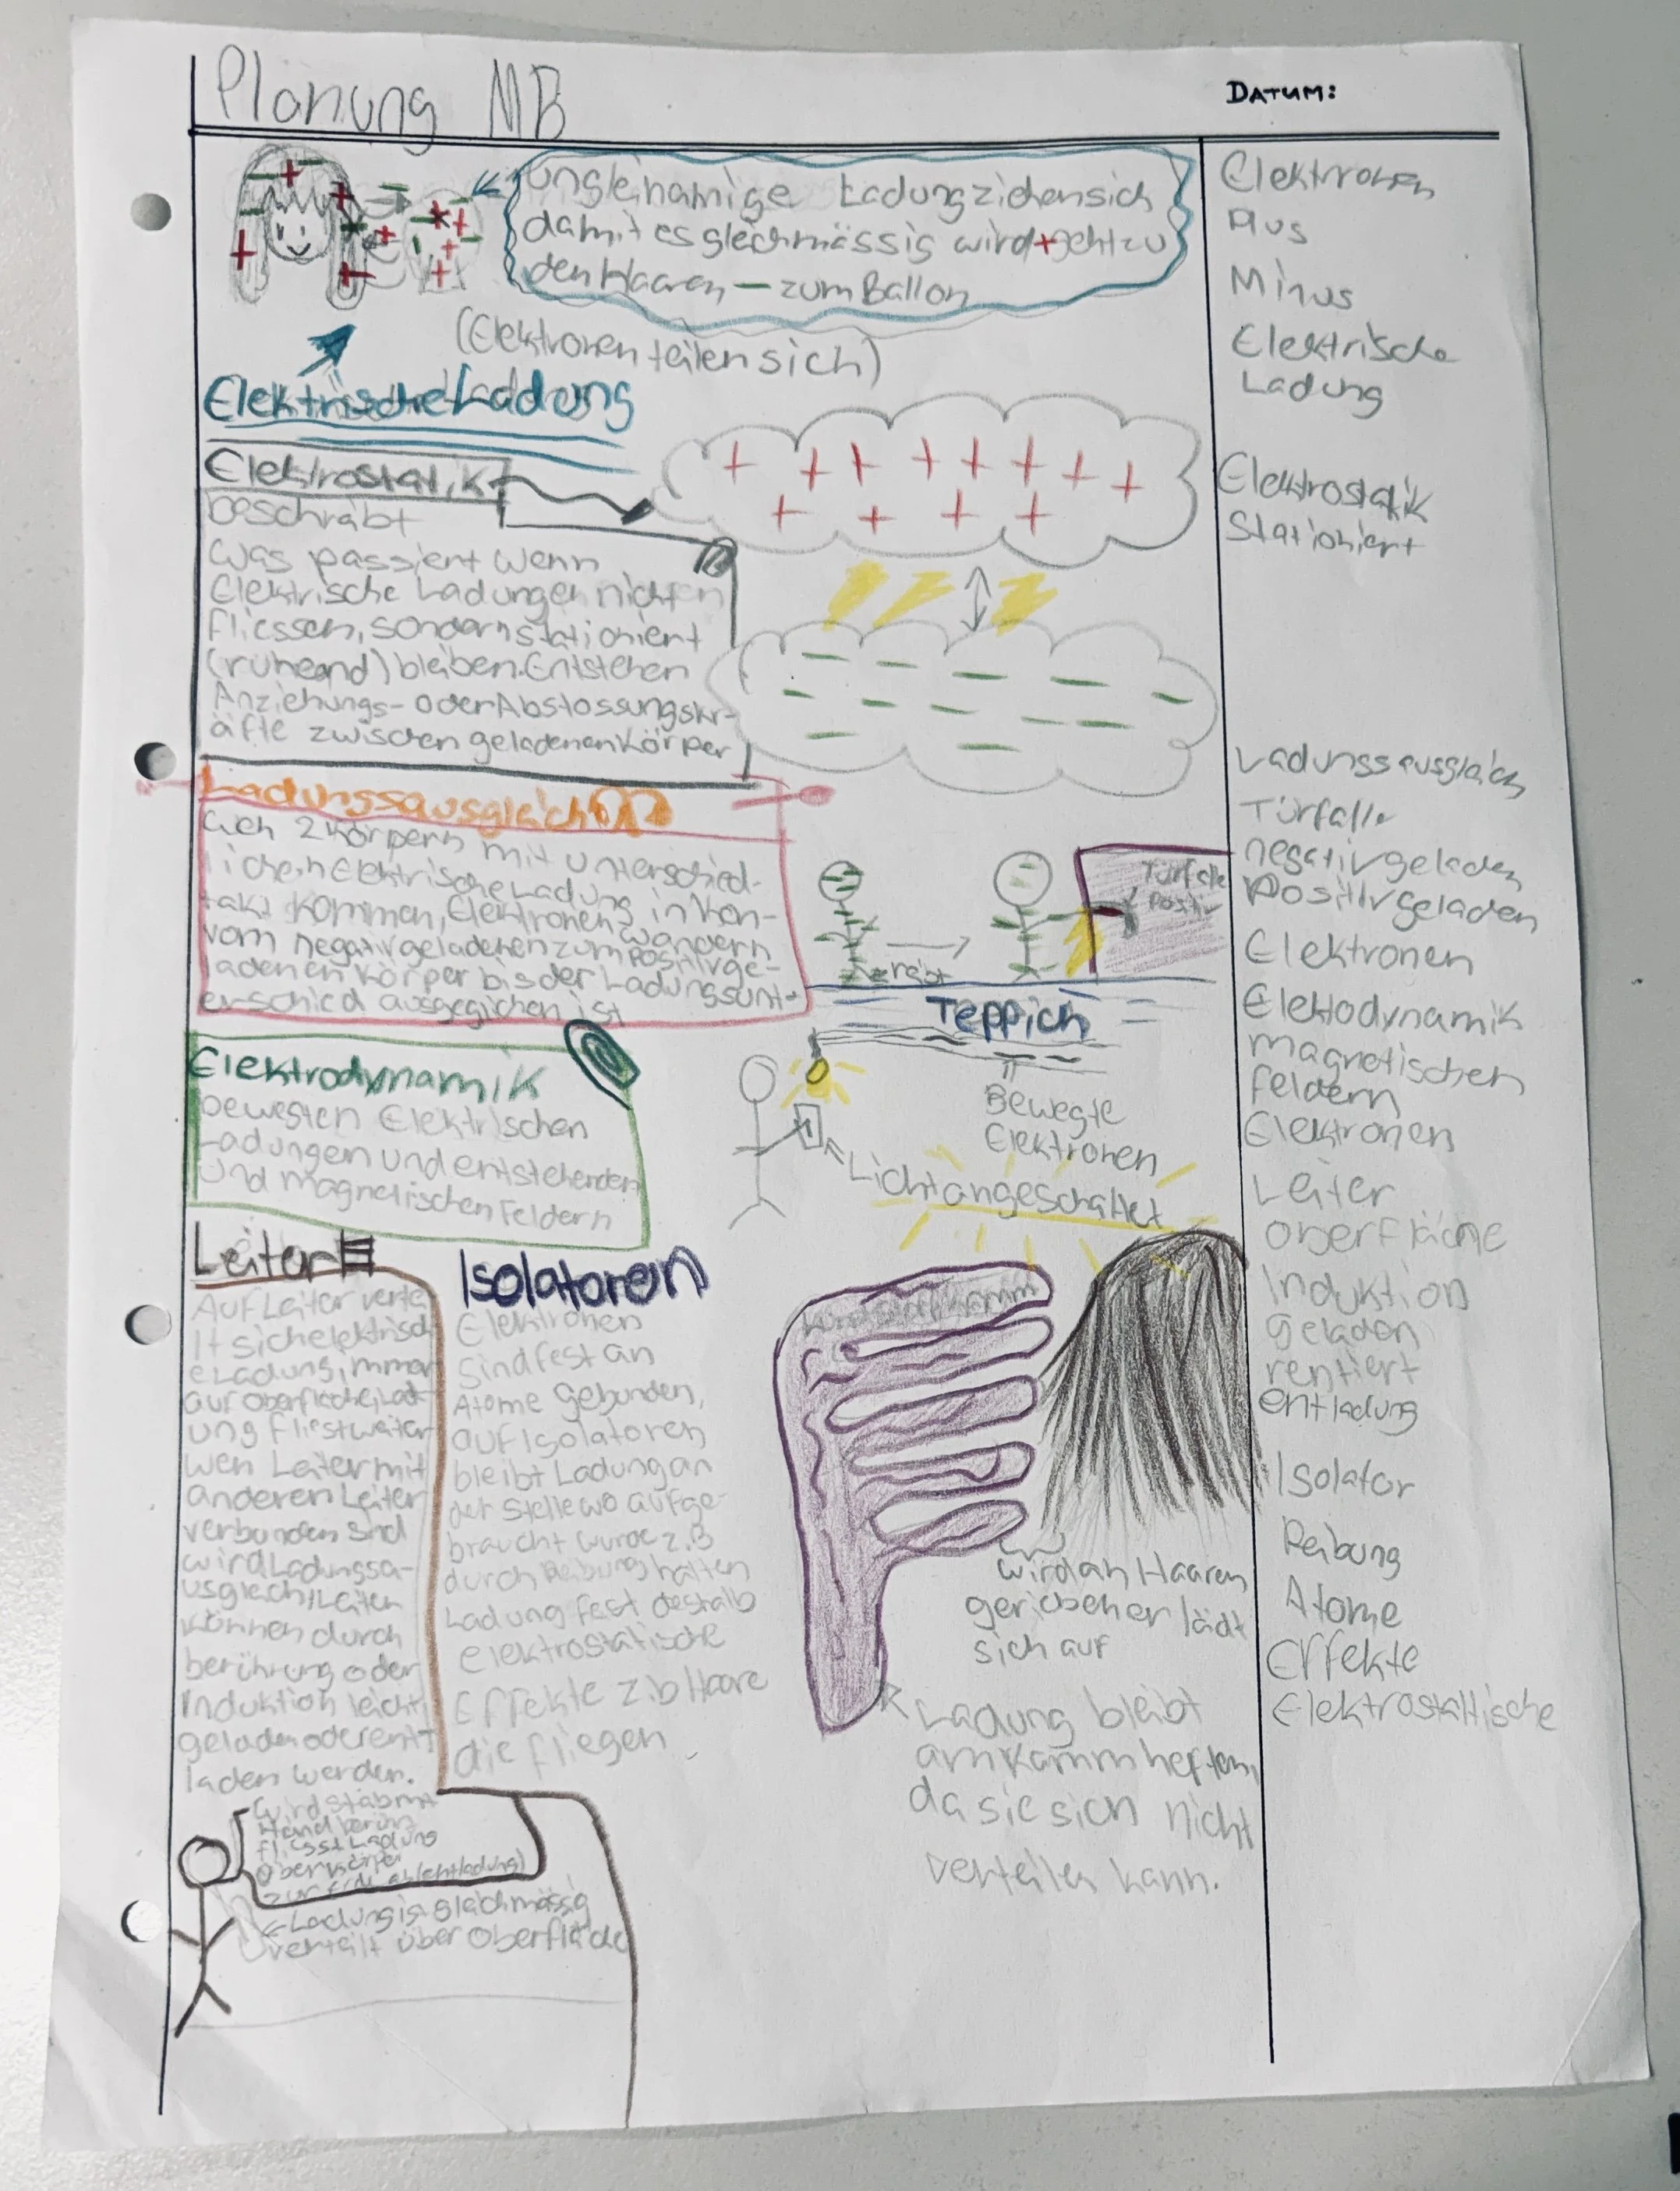 Planung MB
DATUM:
ungleinamige Ladung ziehen sich
damit es gleichmässig wird + geht zu
den Haaren — zum Ballon
(Elektronen teilen sich)
Elektrische Laddung
Elektrostatik
beschräbt
Was passiert wenn
Elektrische Ladungen nicht
fliessen, sondern stationiert
(ruheend) bleiben. Entstehen
Anziehungs- oder Abstossungskr-
äfte zwischen geladenen Körper
Ladungsausgleich
2 Körpern mit unterschied-
lichen Elektrische Ladung in Kon-
takt kommen, Elektronen wandern
vom negativ geladenen zum Positivge-
ladenen Körper bis der Ladungsunt-
erschied ausgeglichen ist
Türfalle
Positiv
reibt
Teppich
Elektrodynamik
bewegten Elektrischen
Ladungen und entstehenden
und magnetischen Feldern
Bewegte
Elektronen
Licht angeschaltet
Leiter
Auf Leiter verte
lt sich elektrisch
e Ladung immer
auf Oberfläche, Lad
ung fliest weiter
wen Leiter mit
anderen Leiter
verbunden sind
wird Ladungsa-
usglech, Leiter
können durch
berührung oder
Induktion leicht
geladen oder ent
laden werden.
Isolatoren
Elektronen
Sind fest an
Atome gebunden,
auf Isolatoren
bleibt Ladung an
der Stelle wo aufge-
braucht wurde z.B
durch Reibung halten
Ladung fest deshalb
elektrostatische
Effekte z.b Haare
die fliegen
wird an Haaren
gerieben er lädt
sich auf
Ladung bleibt
am Kamm heften,
da sie sich nicht
verteilen kann.
Wird stab mit
Hand berün
fliesst Ladung
über Körper
zur Erde ab (entladung)
Ladung is gleichmässig
verteilt über Oberfläche
Elektronen
Plus
Minus
Elektrische
Ladung
Elektrostatik
Stationiert
Ladungsausgleich
Türfalle
negativ geladen
Positiv geladen
Elektronen
Elektodynamik
magnetischen
feldern
Elektronen
Leiter
oberfläche
Induktion
geladen
rentiert
entladung
Isolator
Reibung
Atome
Effekte
Elektrostatische